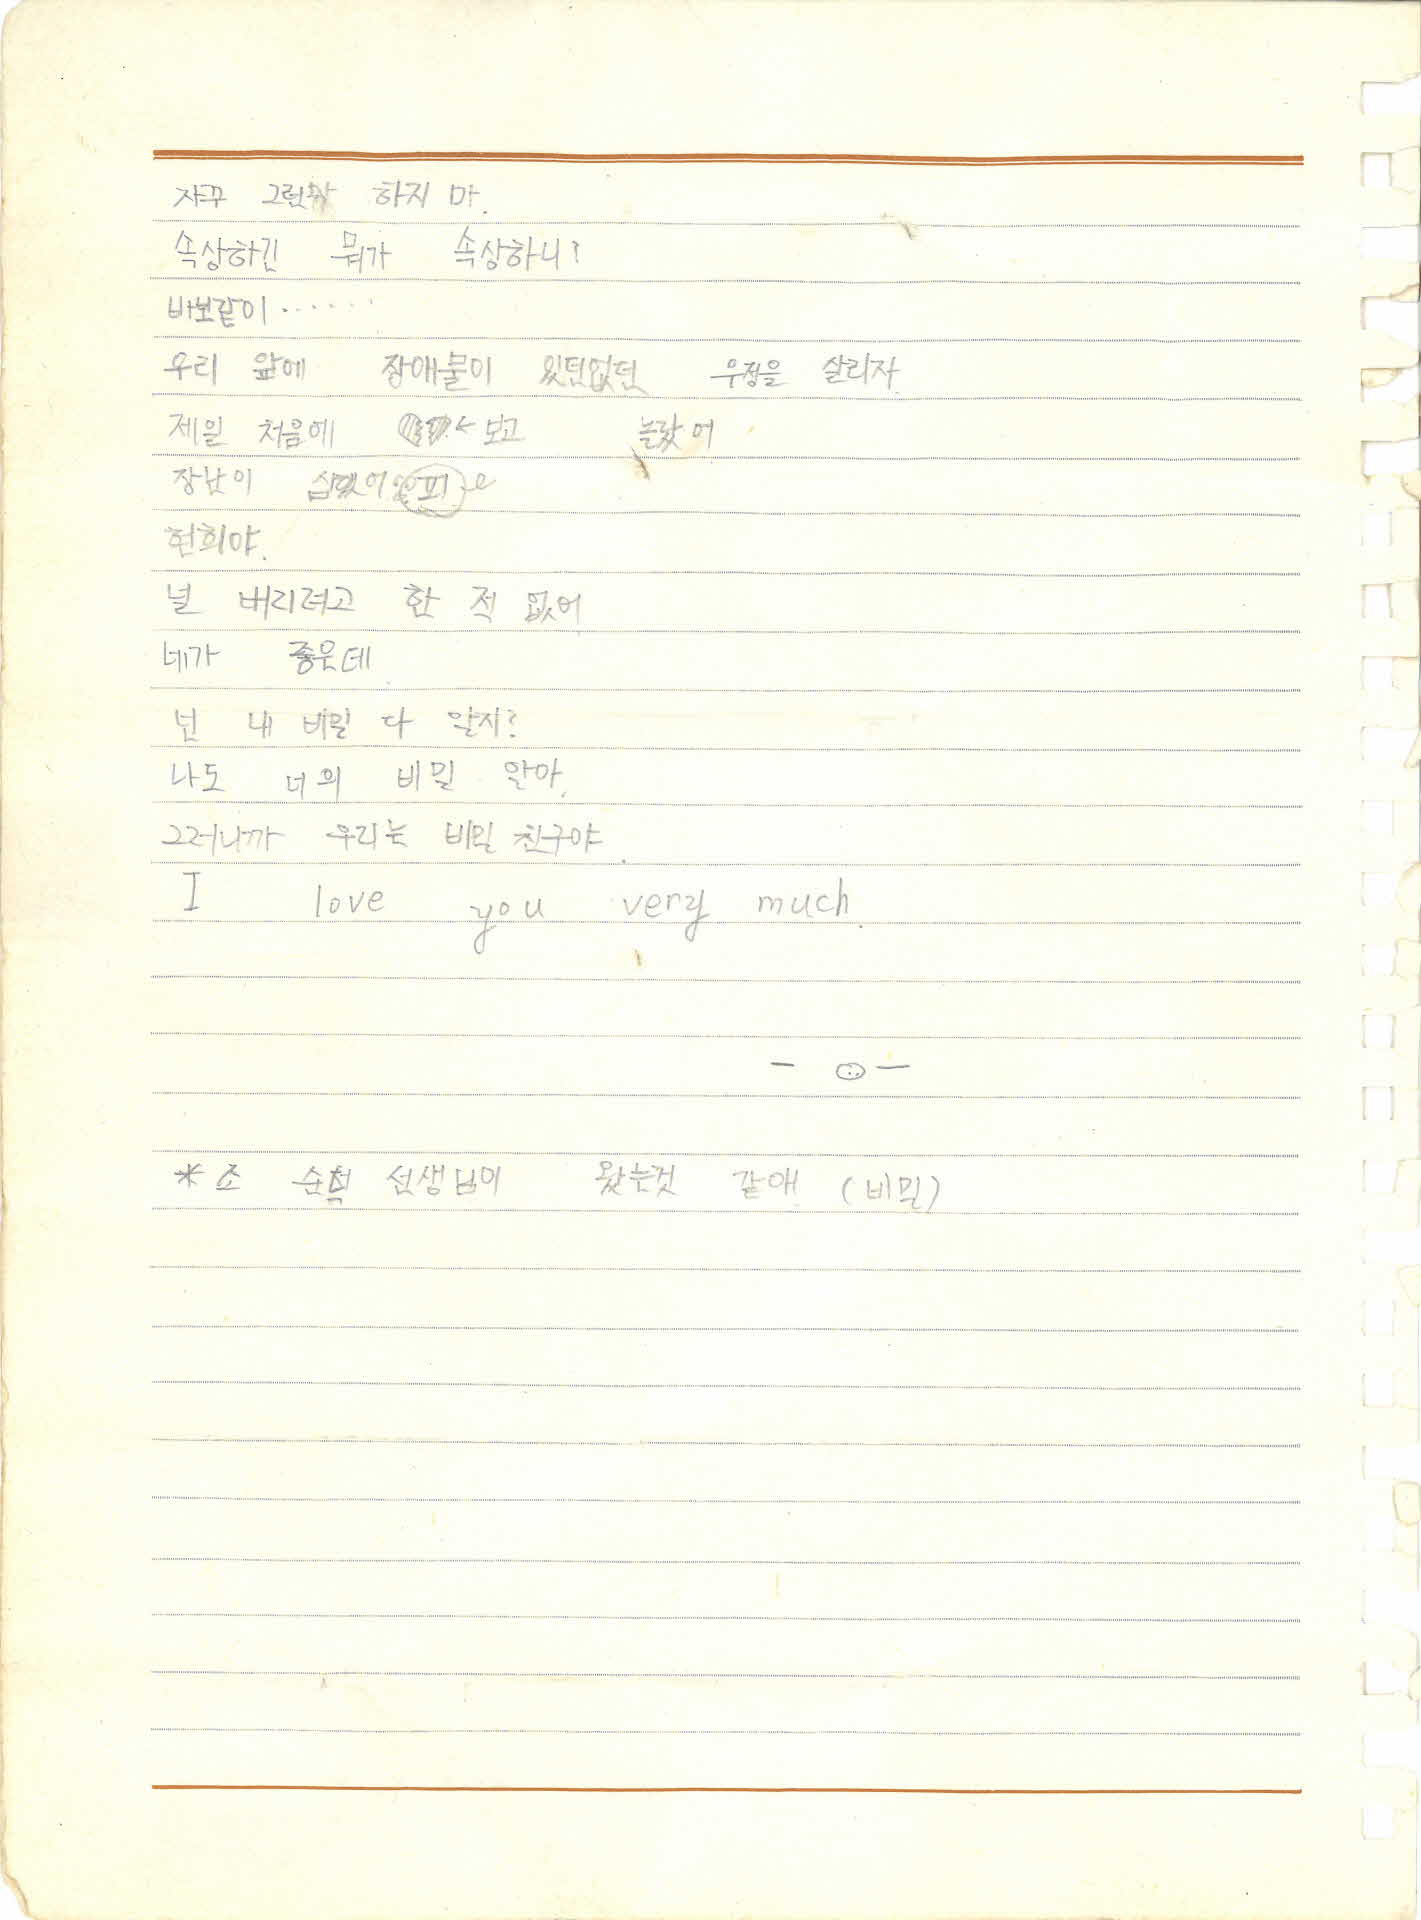 자꾸 하지 마.
속상하긴 뭐가 속상하니?
바보같이......
우리 앞에 장애물이 있던없던 우정을 살리자
제일 처음에 ← 보고 놀랐어
장난이 심했어 피
현희야.
널 버리려고 한 적 없어
네가 좋은데
넌 내 비밀 다 알지?
나도 너의 비밀 알아.
그러니까 우리는 비밀 친구야.
I love you very much.
*조 순혁 선생님이 왔는것 같애 (비밀)